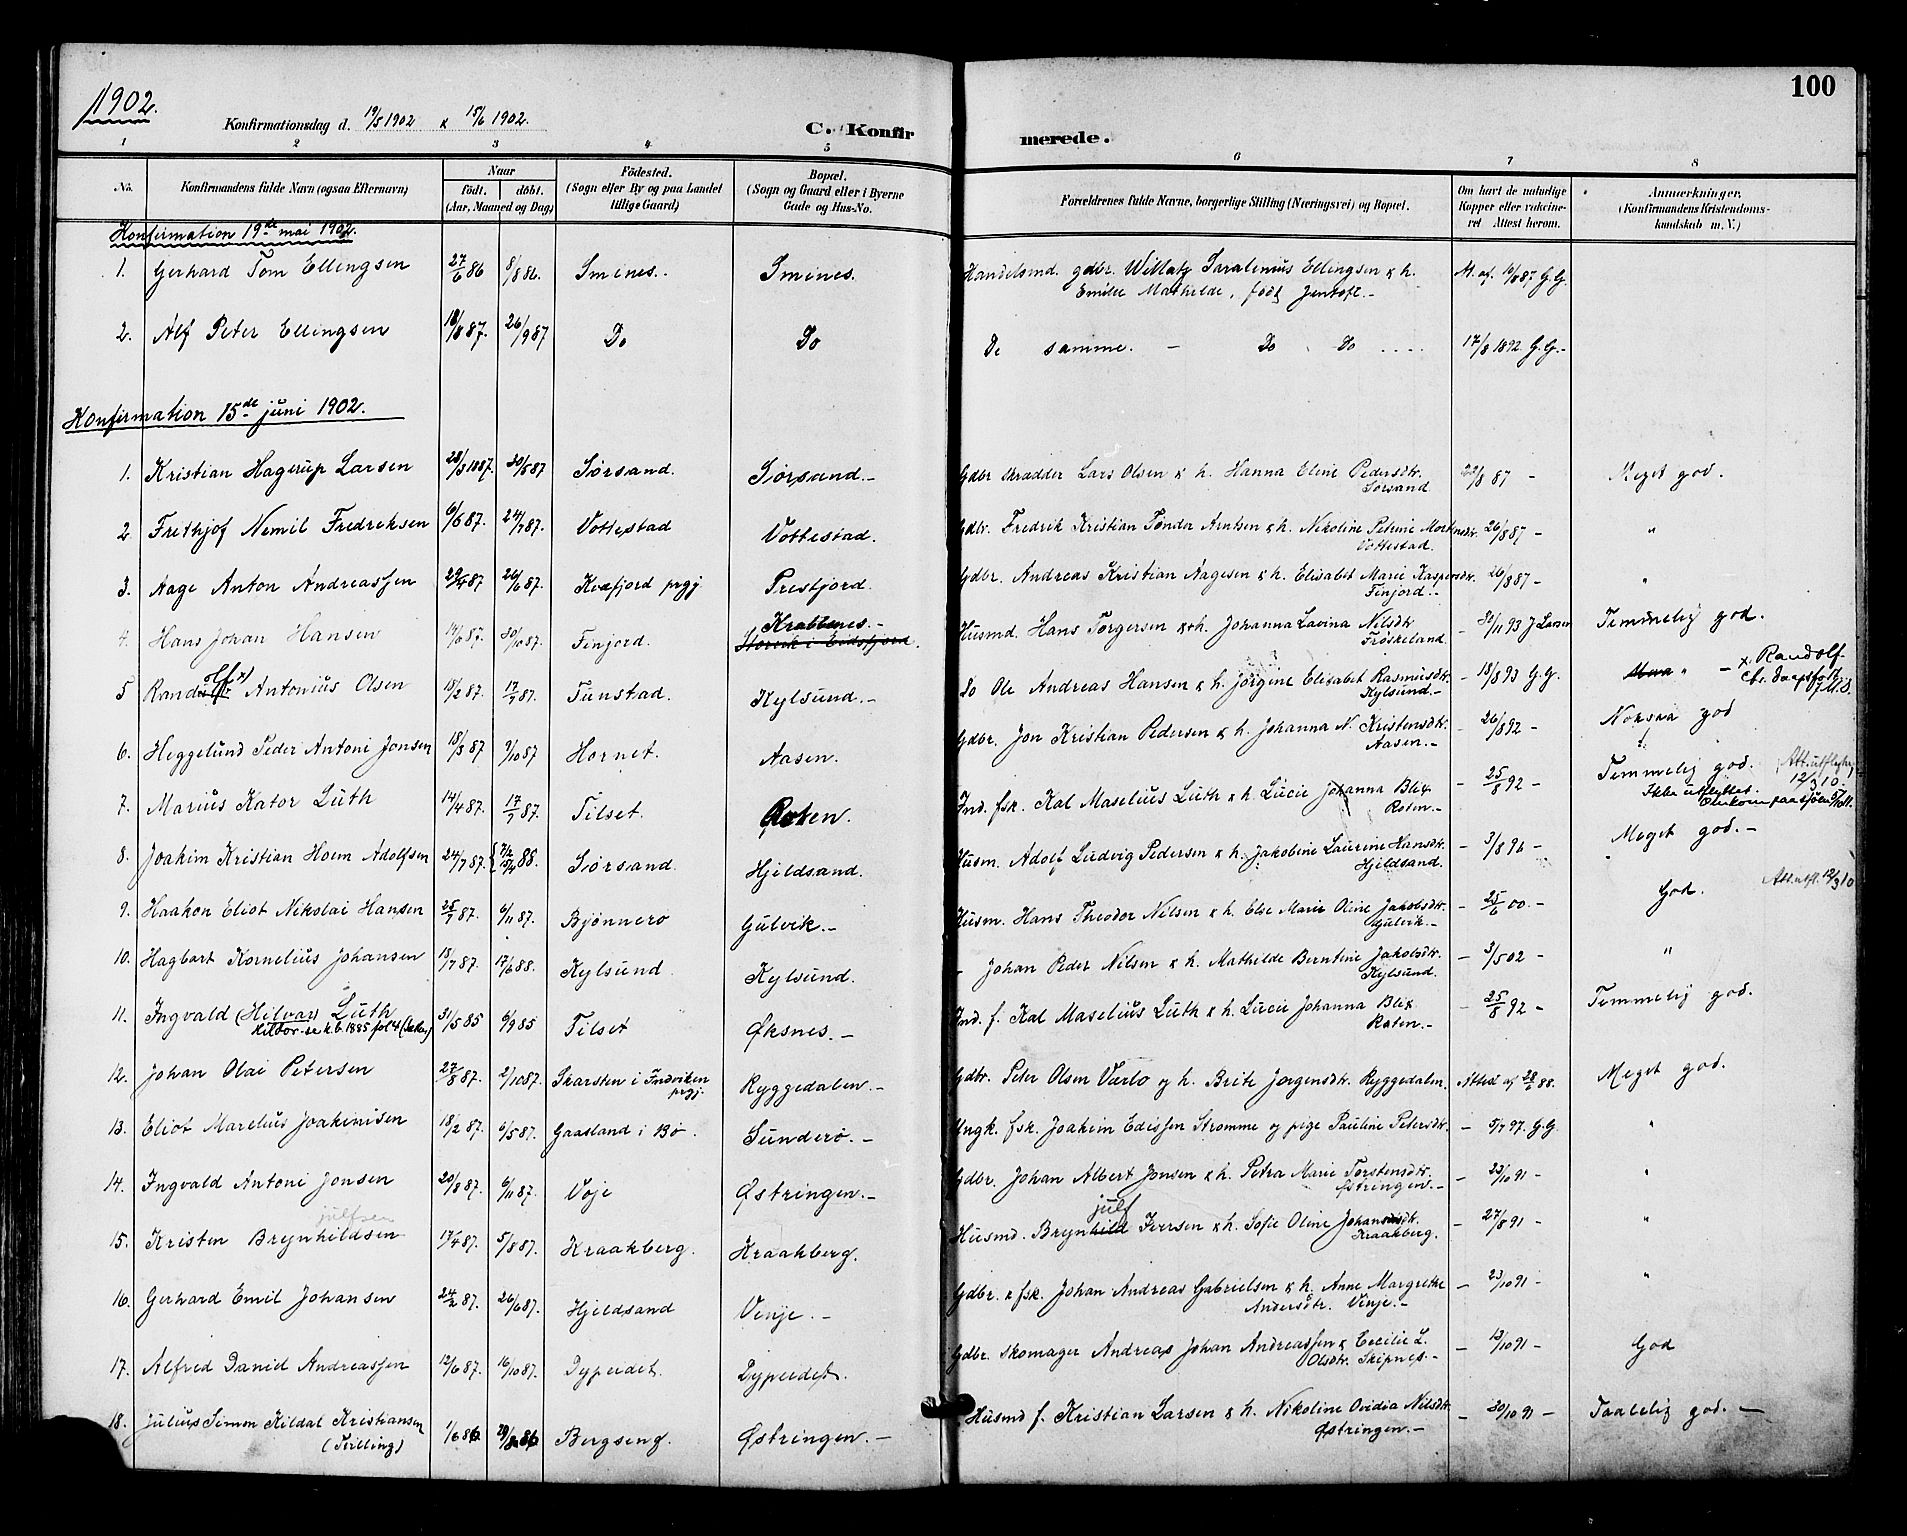 100
1902.
Konfirmationsdag d. 19/5 1902 x 15/6 1902.
C. Konfirmerede.
1 2 3 4 5 6 7 8
No. Konfirmandens fulde Navn (ogsaa Efternavn) Naar født. døbt. (Aar, Maaned og Dag) Fødested. (Sogn eller By og paa Landet tillige Gaard) Bopæl. (Sogn og Gaard eller i Byerne Gade og Hus-No. Forældrenes fulde Navne, borgerlige Stilling (Næringsvei) og Bopæl. Om havt de naturlige Kopper eller vakcineret Attest herom. Anmærkninger, (Konfirmandens Kristendomskundskab m. V.)
Konfirmation 19de mai 1902.
1. Gerhard Tom Ellingsen 27/6 86 8/8 86. Smines. Smines. Handelsmd. gdbr. Willatz Saralenius Ellingsen & h. Emilie Mathilde, født Jentoft.- At. af. 16/8 87 G.G.
2. Alf Peter Ellingsen 18/8 87. 26/9 87 Do Do De samme. - Do Do 17/8 1892 G.G.-
Konfirmation 15de juni 1902.
1. Kristian Hagerup Larsen 28/3 1887. 30/5 87 Sørsand. Sørsand.- Gdbr skrædder Lars Olsen & h. Hanna Eline Pedersdtr. Sørsand 22/8 87 - Meget god.
2 Frithjof Nemil Fredreksen 6/6 87. 24/7 87. Vottestad Vottestad. Gdbr. Fredrik Kristian Tønder Arntsen & h. Nikoline Petrine Mortensdtr. Vottestad. 26/8 87 - "
3. Aage Anton Andreassen 29/4 87 26/6 87. Kvæfjord prgj Prestfjord. Gdbr. Andreas Kristian Aagesen & h. Elisabet Marie Kaspersdtr. Finjord.- 26/8 87 - "
4. Hans Johan Hansen 14/6 87. 30/10 87. Finjord. Krabbenes.- Storvik i Eidsfjord. Husmd. Hans Torgersen & h. Johanna Lavina Nilsdtr Frøskeland. - 30/11 93 J Larsen Temmelig god.
5 Randolf x) Antonius Olsen 18/2 87. 17/7 87. Tunstad. Kylsund.- Do Ole Andreas Hansen & h. Jørgine Elisabet Rasmusdtr. Kylsund.- - 18/8 93 G.G. " - x. Randolf
6. Heggelund Peder Antoni Jonsen 18/3 87 9/10 87. Hornet. Aasen. Gdbr. Jon Kristian Pedersen & h. Johanna N. Kristensdtr. Aasen.- - 26/8 92 - Noksaa god
7. Marius Kator Luth 14/4 87. 17/7 87. Tilset. Roten. Ind. fsk. Kal Maselius Luth & h. Lucie Johanna Blix Roten.- - 25/8 92 - Temmelig god. Att. utflytn. 12/3 10. Ikke utflyttet.
8. Joakim Kristian Hoem Adolfsen 24/7 87. 7/2 15/4 88. Sørsand. Hjeldsand. Husm. Adolf Ludvig Pedersen & h. Jakobine Laurine Hansdtr. Hjeldsand. - 3/8 96 - Meget god.-
9. Haakon Eliot Nikolai Hansen 25/7 87. 6/11 87. Bjønnerø Gulvik.- Husm. Hans Theodor Nilsen & h. Else Marie Oline Jakobsdtr. Gulvik.- - 25/6 00.- God. Att. utfl. 12/3 10
10. Hagbart Kornelius Johansen 18/7 87. 17/6 88. Kylsund. Kylsund. - Johan Peder Nilsen & h. Mathilde Berntine Jakobsdtr. Kylsund. - 3/5 02 - "
11. Ingvald (Hilvar) Luth Kildor se k.b. 1885 fol 4 31/5 85 6/9 85 Tilset Øksnes.- Ind. f. Kal Maselius Luth & h. Lucie Johanna Blix Roten.- - 25/8 92 - Temmelig god.
12. Johan Olai Petersen 27/8 87. 2/10 87. Skarsten i Indviken prgj. Ryggedalen.- Gdbr. Peter Olsen Varlo og h. Brite Jørgensdtr. Ryggedalen. Attest af 28/6 88. Meget god.
13. Eliot Marelius Joakimsen 18/2 87. 6/5 87. Gaasland i Bø. Sunderø.- Ungk. fsk. Joakim Edissen Strømme og pige Pauline Petersdtr. - 5/7 97. G.G. "
14. Ingvald Antoni Jonsen 20/8 87. 6/11 87. Voje Østringen.- Gdbr. Johan Albert Jonsen & h. Petra Marie Torstensdtr. Østringen.- - 23/10 91 - "
15. Kristen Brynhildsen julfsen 17/4 87. 5/8 87. Kraakberg. Kraakberg. Husmd. Brynhild julf Iversen & h. Sofie Oline Johansdtr. Kraakberg. - 27/8 91 - "
16. Gerhard Emil Johansen 24/2 87. 26/6 87. Hjeldsand Venje.- Gdbr. & fsk. Johan Andreas Gabrielsen & h. Anne Margrethe Andersdtr. Venje.- - 23/10 91 - "
17. Alfred Daniel Andreassen 12/6 87. 16/10 87. Dypeidet. Dypeidet. Gdbr. skomager Andreas Johan Andreassen & Cecilie L. Olsdtr. Skipnes.- - 13/10 91 - God
18. Julius Simon Kildal Kristiansen (Tvilling) 1/6 86 29/8 86 Bergseng. Østringen.- Husmd f. Kristian Larsen & h. Nikoline Ovidia Nilsdtr. Østringen.- - 30/10 91 - Taalelig god.-